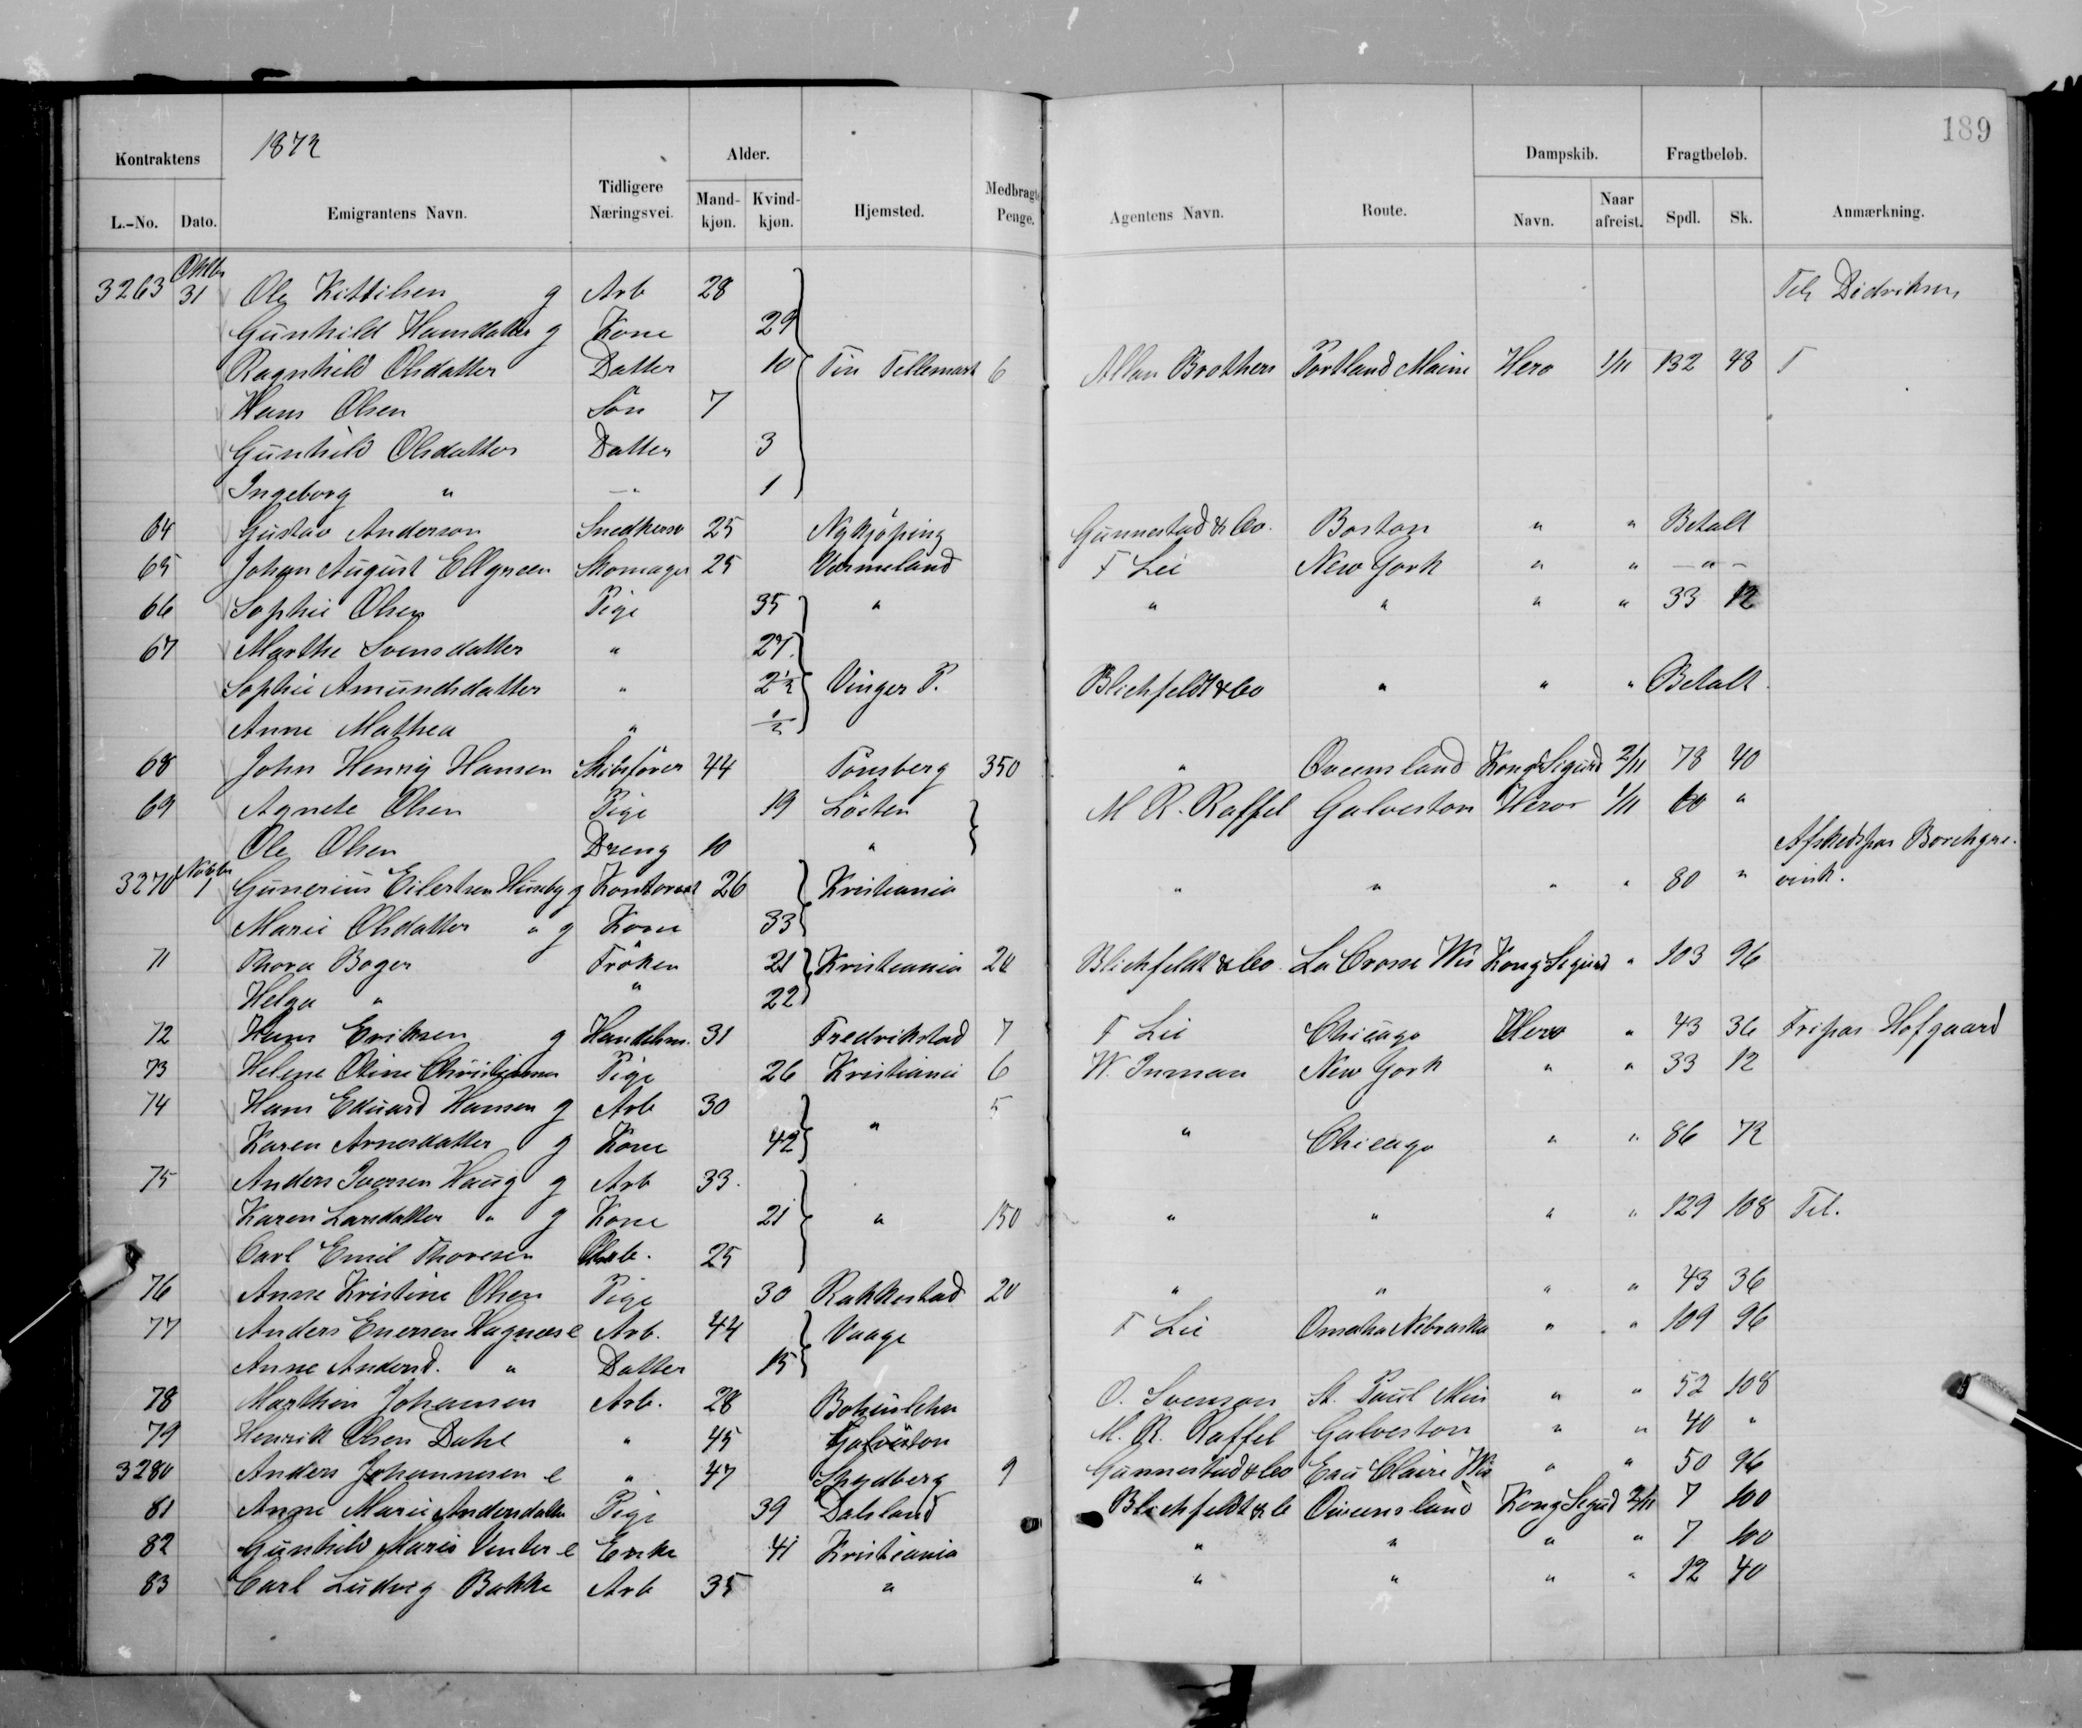 189
1872
Kontraktens Alder. Dampskib. Fragtbeløb.
L.-No. Dato. Emigrantens Navn. Tidligere Næringsvei. Mand-kjøn. Kvind-kjøn. Hjemsted. Medbragte Penge. Agentens Navn. Route. Navn. Naar afreist. Spdl. Sk. Anmærkning.
3263 Oktbr 31 Ole Kittilsen g Arb 28 Didriksen
Gunhild Hansdatter g Kone 29
Ragnhild Olsdatter Datter 10 Tin Tellemark 6 Allan Brothers Portland Maine Hero 1/11 132 48 T
Hans Olsen Sön 7
Gunhild Olsdatter Datter 3
Ingeborg " -"- 1
64 Gustav Anderson Snedkersv 25 Nykjöping Gunnestad & Co. Boston " " Betalt
65 Johan August Ellgreen Skomager 25 Vermeland F Lie New York " " -"-
66 Sophie Olsen Pige 35 " " " " " 33 12
67 Marthe Svensdatter " 27.
Sophie Amundsdatter " 2 1/2 Vinger P. Blichfeldt & Co " " " Betalt.
Anne Mathea " 1/2
68 John Henrig Hansen Skibsförer 44 Tönsberg 350 " Queensland Kong Sigurd 2/11 78 40
69 Agnete Olsen Pige 19 Löiten M R. Raffel Galveston Hero 1/11 60 "
Ole Olsen Dreng 10 "
3270 Novbr 1 Gunerius Eilertsen Huseby g Kontorist 26 Kristiania " " " " 80 " Afskedspas Borchgrevink.
Marie Olsdatter " g Kone 33
71 Thora Boger Fröken 21 Kristiania 20 Blichfeldt & Co La Crosse Wis Kong Sigurd " 103 96
Helga " " 22
72 Hans Eriksen g Handelsm. 31 Fredrikstad 7 F Lie Chicago Hero " 43 36 Fripas Hofgaard
73 Helene Oline Christiansen Pige 26 Kristiania 6 W. Inman New York " " 33 12
74 Hans Eduard Hansen g Arb 30 " 5 " Chicago " " 86 72
Karen Arnesdatter g Kone 42
75 Anders Iversen Haug g Arb 33.
Karen Larsdatter " g Kone 21 " 150 " " " " 129 108 Tel.
Carl Emil Thoresen Arb. 25
76 Anne Kristine Olsen Pige 30 Rakkestad 20 " " " " 43 36
77 Anders Enersen Hagnæs e Arb. 44 Vaage F Lie Omaha Nebraska " " 109 96
Anne Andersd. " Datter 15
78 Marthin Johansen Arb. 28 Bohuslehn O. Svenson St. Paul Min " " 52 108
79 Henrik Olsen Dahl " 45 Galveston M. R. Raffel Galveston " " 40 "
3280 Anders Johannesen e " 47 Spydberg 9 Gunnestad & Co Eau Claire Wis " " 50 96
81 Anne Marie Andersdatter Pige 39 Dalsland Blichfeldt & C Queensland Kong Sigurd 2/11 7 100
82 Gunhild Marie Venter e Enke 41 Kristiania " " " " 7 100
83 Carl Ludvig Bakke Arb 35 " " " " " 12 40